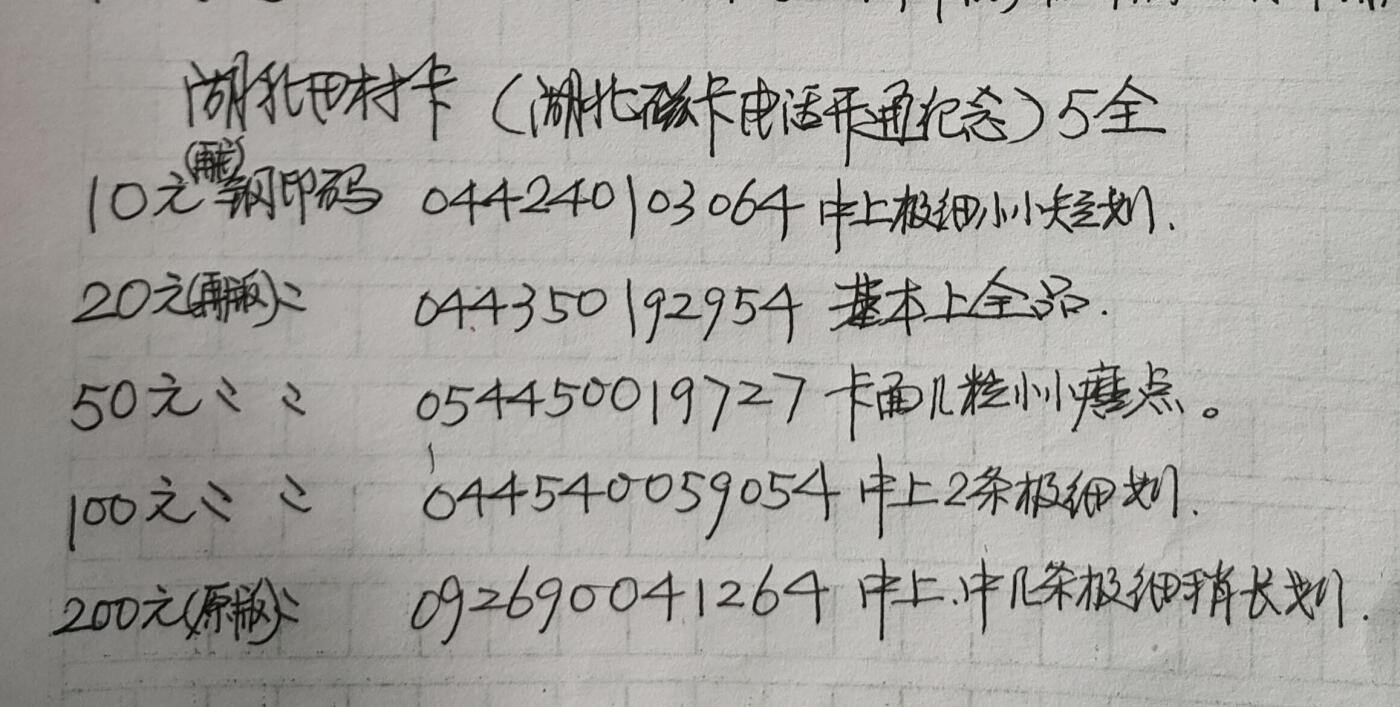 湖北田村卡（湖北磁卡电话开通纪念）5全
10元(再版)钢印码 044240103064 中上极细小小短划.
20元(再版)〃 044350192954 基本上全品.
50元〃 〃 054450019727 卡面几粒小小瘪点。
100元〃 〃 044540059054 中上2条极细划.
200元(原版)〃 092690041264 中上.中几条极细稍长划.